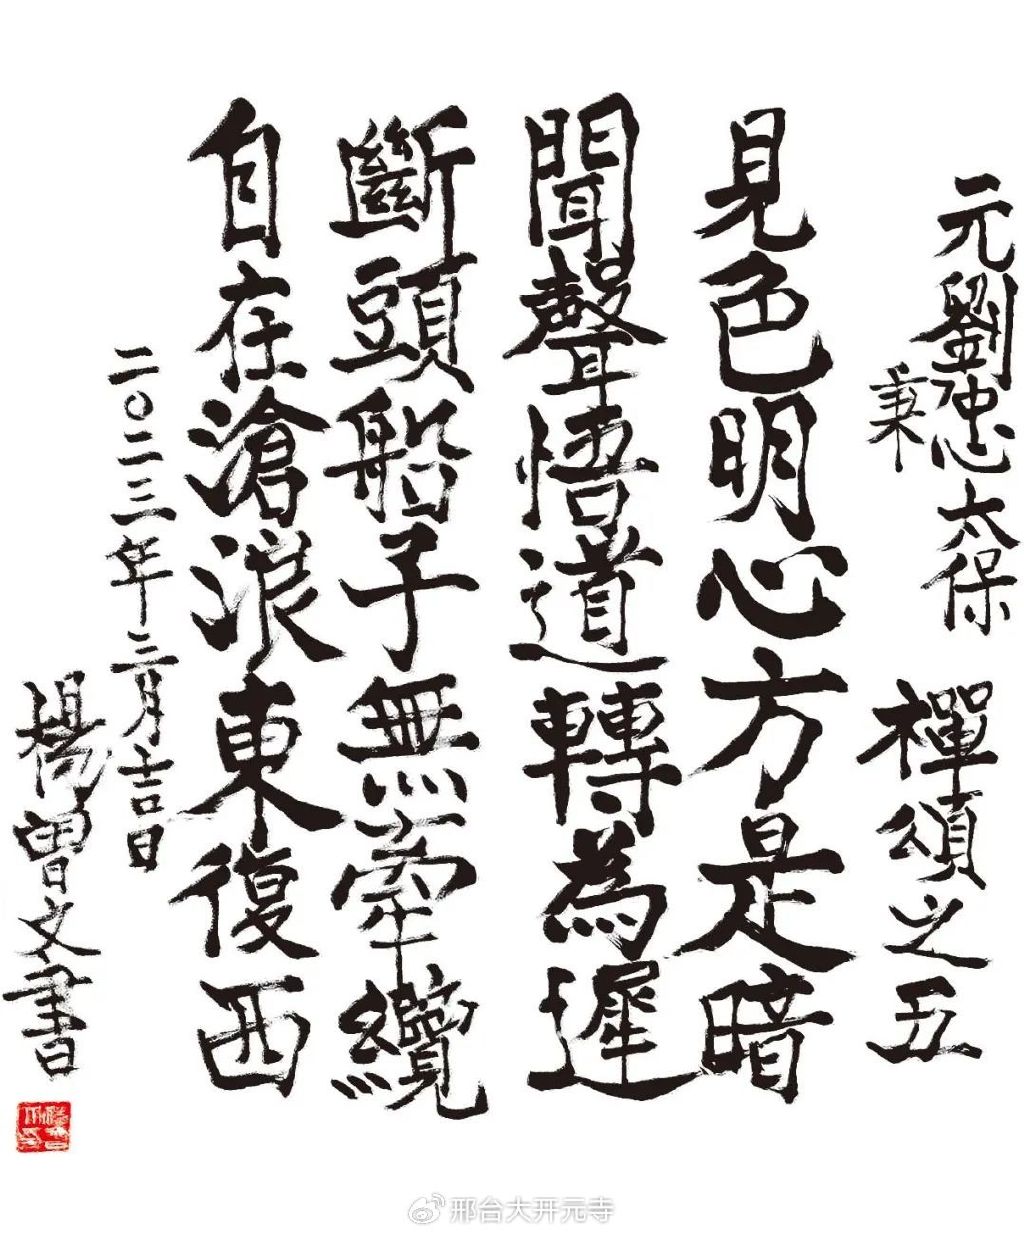 元劉秉忠太保 禪頌之五
見色明心方是暗
聞聲悟道轉為遲
斷頭船子無牽纜
自在滄浪東復西
二〇二三年三月吉日
楊曾文書
邢台大开元寺